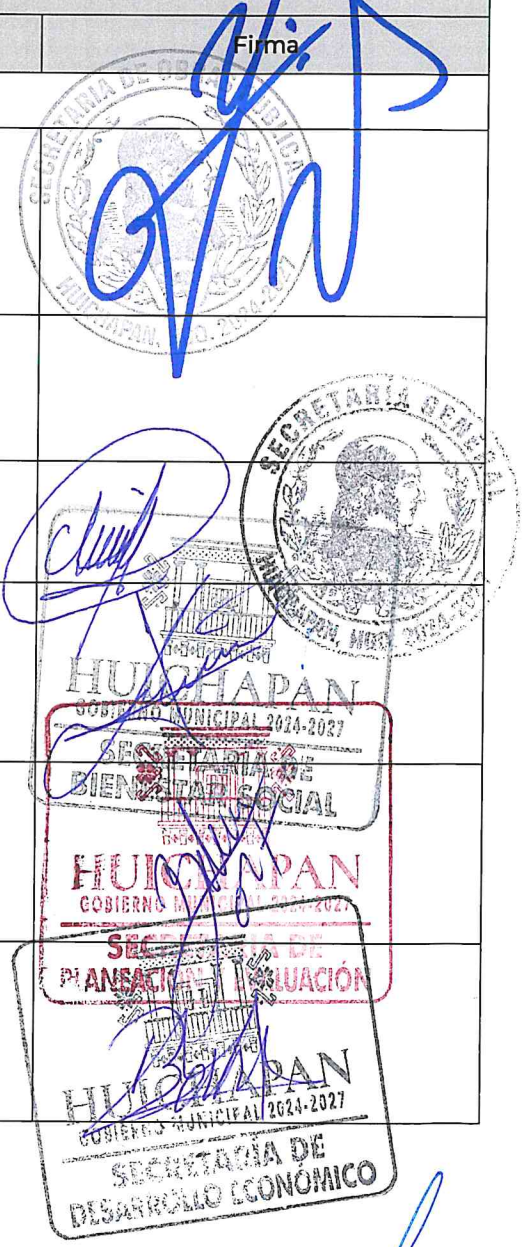 Firma
SECRETARIA DE OBRAS PUBLICAS
HUICHAPAN, HGO. 2024-2027
SECRETARÍA GENERAL
HUICHAPAN, HGO. 2024-2027
HUICHAPAN
GOBIERNO MUNICIPAL 2024-2027
SECRETARIA DE
BIENESTAR SOCIAL
HUICHAPAN
GOBIERNO MUNICIPAL 2024-2027
SECRETARIA DE
PLANEACIÓN Y EVALUACIÓN
HUICHAPAN
GOBIERNO MUNICIPAL 2024-2027
SECRETARÍA DE
DESARROLLO ECONÓMICO